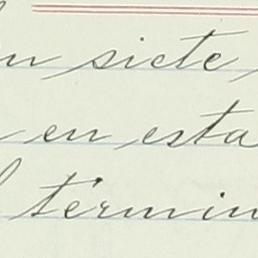 siete
en esta
términ